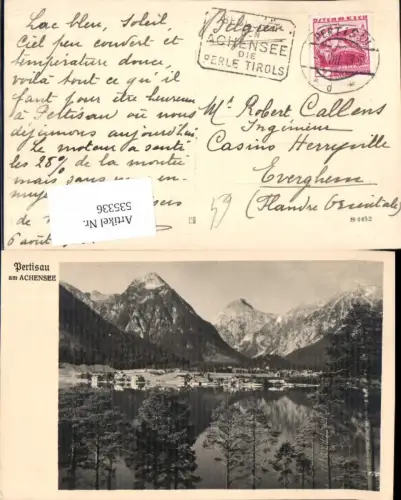 Lac bleu, Soleil,
Ciel peu couvert et
température douce,
voilà tout ce qu'il
faut pour être heureux
à Pertisau où nous
déjeunons aujourd'hui.
Le moteur a sauté
les 28% de la montée
mais sans
6 août
Artikel Nr.
535336
Belgien
ACHENSEE
DIE
PERLE TIROLS
ÖSTERREICH
PERTISAU
Mr Robert Callens
Ingénieur
Casino Herryville
Everghem
(Flandre Orientale)
59
Pertisau
am ACHENSEE